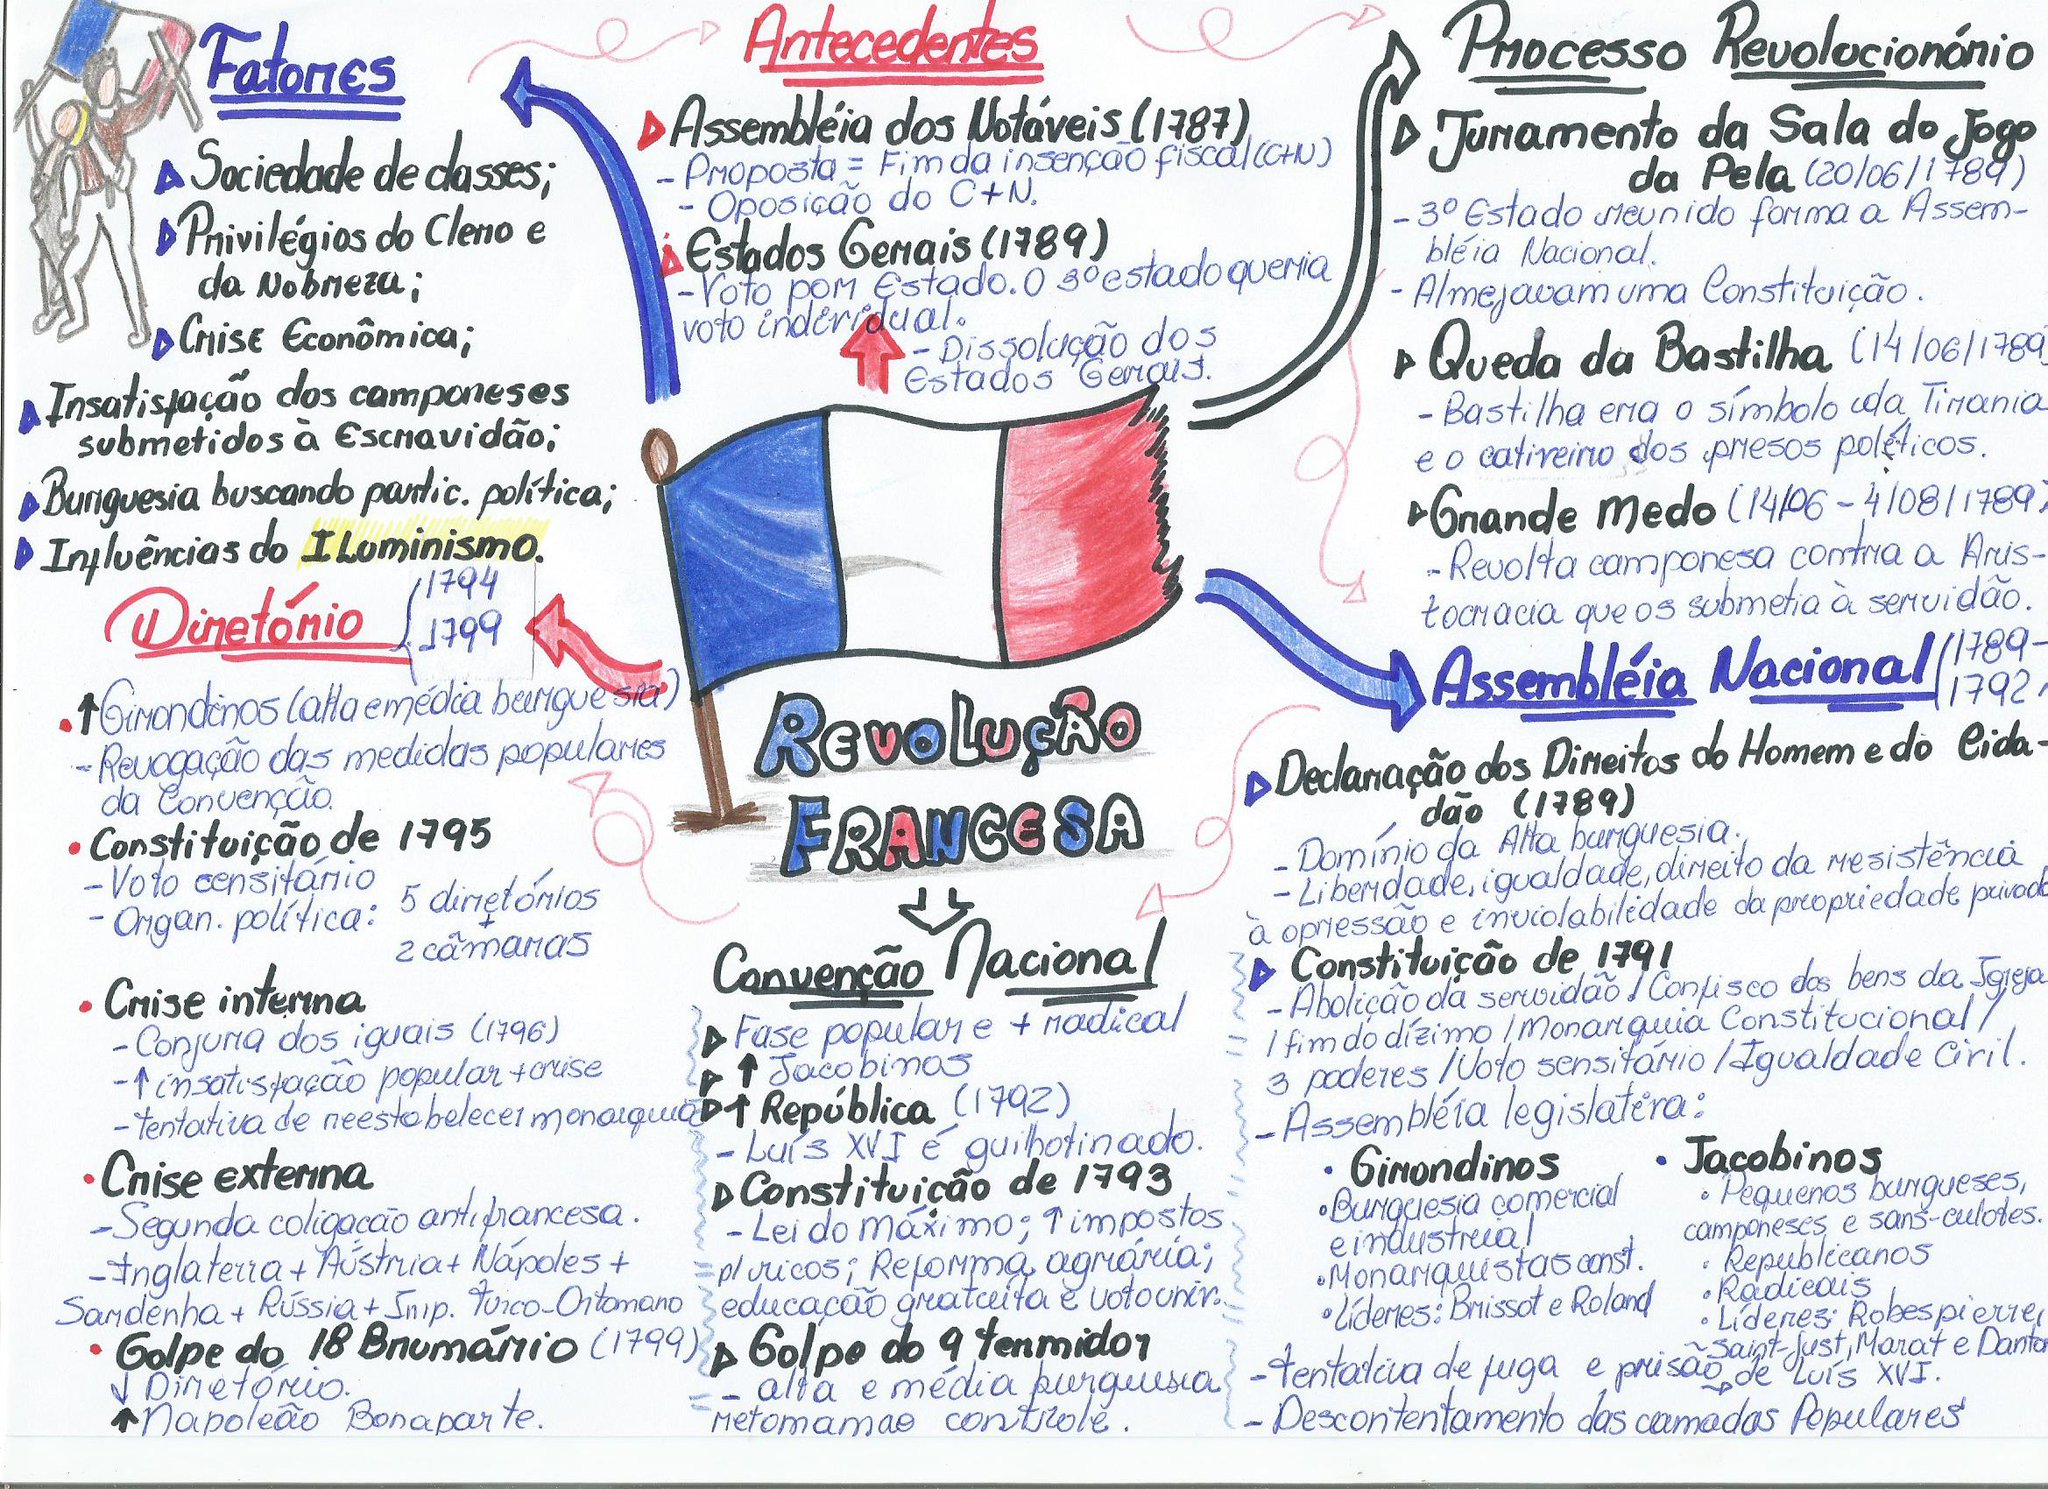 Fatores
Sociedade de classes;
Privilégios do Clero e
da Nobreza;
Crise Econômica;
Insatisfação dos camponeses
submetidos à Escravidão;
Burguesia buscando partic. política;
Influências do Iluminismo.
Antecedentes
Assembléia dos Notáveis (1787)
- Proposta = Fim da insenção fiscal (C+N)
- Oposição do C+N.
Estados Gerais (1789)
- Voto por Estado. O 3º estado queria
voto individual.
- Dissolução dos
Estados Gerais.
Processo Revolucionário
Juramento da Sala do Jogo
da Pela (20/06/1789)
- 3º Estado reunido forma a Assem-
bléia Nacional.
- Almejavam uma Constituição.
Queda da Bastilha (14/06/1789
- Bastilha era o símbolo da Tirania
e o cativeiro dos presos políticos.
Grande Medo (14/06 - 4/08/1789)
- Revolta camponesa contra a Aris-
tocracia que os submetia à servidão.
Assembléia Nacional (1789-
1792
Declaração dos Direitos do Homem e do Cida-
dão (1789)
- Domínio da Alta burguesia.
- Liberdade, igualdade, direito da resistência
à opressão e inviolabilidade da propriedade privada
Constituição de 1791
- Abolição da servidão / Confisco dos bens da Igreja
/ fim do dízimo / Monarquia Constitucional /
3 poderes / Voto sensitário / Igualdade Civil.
- Assembléia legislativa:
• Girondinos
• Burguesia comercial
e industrial
• Monarquistas const.
• Líderes: Brissot e Roland
• Jacobinos
• Pequenos burgueses,
camponeses e sans-culotes.
• Republicanos
• Radicais
• Líderes: Robespierre,
Saint-Just, Marat e Danton
- Tentativa de fuga e prisão de Luís XVI.
- Descontentamento das camadas Populares
Revolução
Francesa
Convenção Nacional
Fase popular e + radical
↑ Jacobinos
↑ República (1792)
- Luís XVI é guilhotinado.
Constituição de 1793
- Lei do Máximo; ↑ impostos
p/ ricos; Reforma agrária;
educação gratuita e voto univ.
Golpe do 9 termidor
- alta e média burguesia
retomam o controle.
Diretório 1794
1799
• ↑ Girondinos (alta e média burguesia)
- Revogação das medidas populares
da Convenção.
• Constituição de 1795
- Voto censitário
- Organ. política: 5 diretórios
+
2 câmaras
• Crise interna
- Conjura dos iguais (1796)
- ↑ insatisfação popular + crise
- tentativa de reestabelecer monarquia
• Crise externa
- Segunda coligação antifrancesa.
- Inglaterra + Áustria + Nápoles +
Sardenha + Rússia + Imp. Turco-Ortomano
• Golpe do 18 Brumário (1799)
↓ Diretório.
↑ Napoleão Bonaparte.